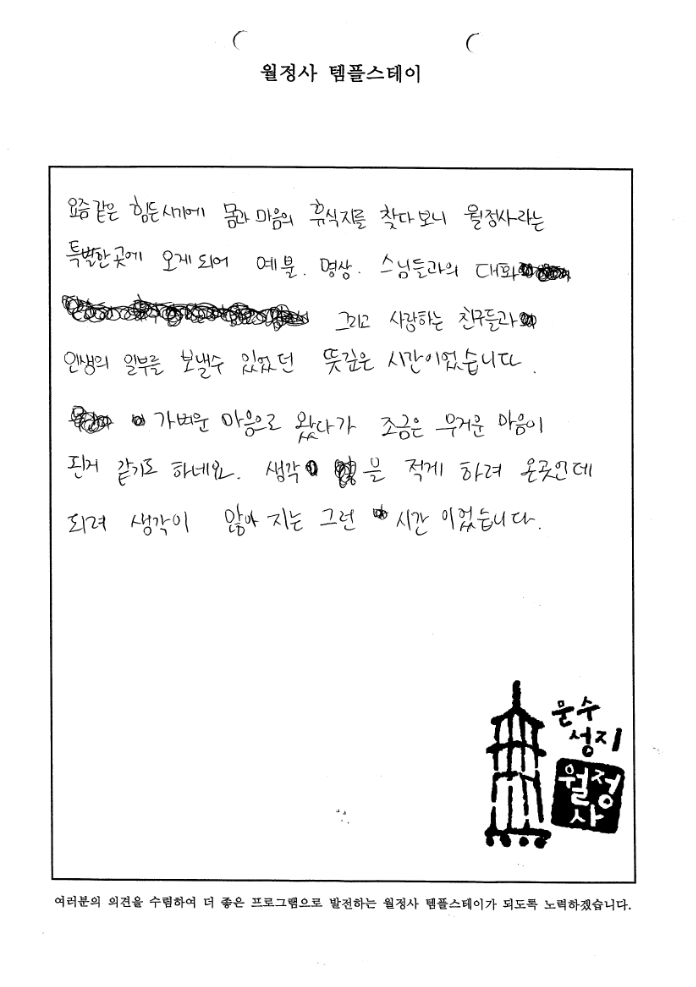 월정사 템플스테이
요즘같은 힘든시기에 몸과 마음의 휴식지를 찾다보니 월정사라는
특별한곳에 오게되어 예불. 명상. 스님들과의 대화
그리고 사랑하는 친구들과
인생의 일부를 보낼수 있었던 뜻깊은 시간이었습니다.
가벼운 마음으로 왔다가 조금은 무거운 마음이
된거 같기도 하네요. 생각 을 적게 하려 온곳인데
되려 생각이 많아 지는 그런 시간 이었습니다.
문수
성지
월정
사
여러분의 의견을 수렴하여 더 좋은 프로그램으로 발전하는 월정사 템플스테이가 되도록 노력하겠습니다.